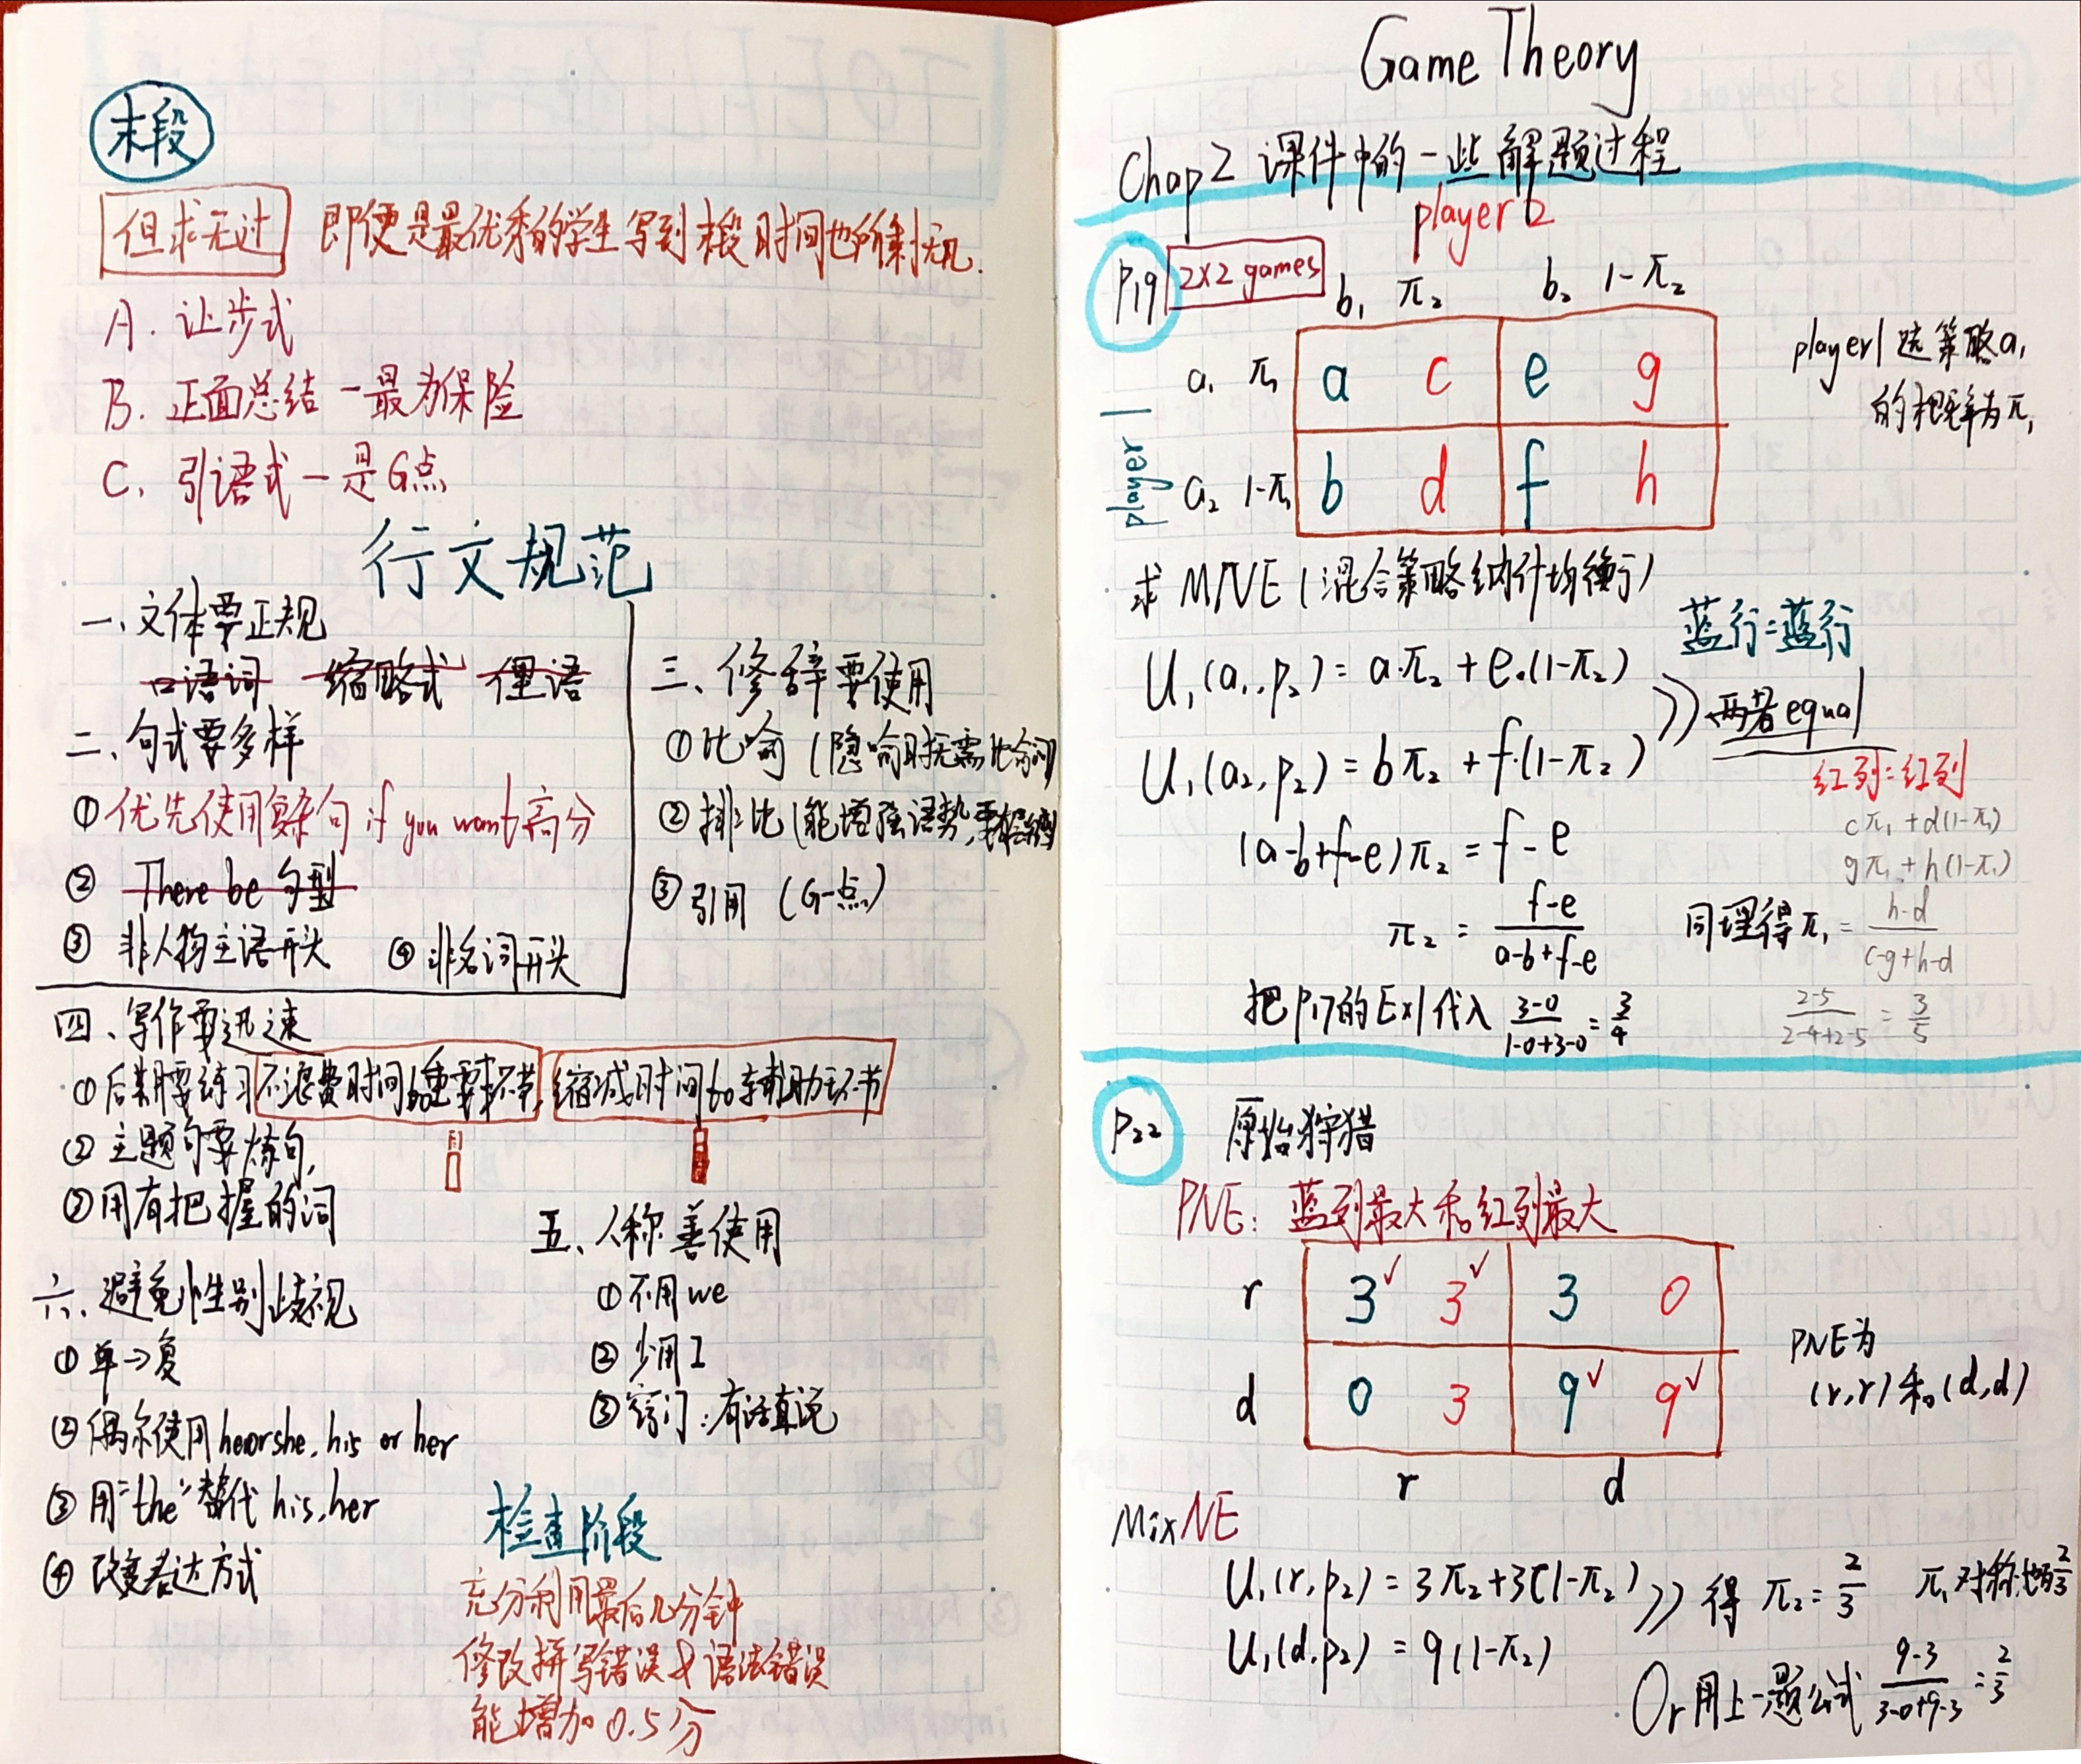 末段
但求无过 即便是最优秀的学生写到末段时间也所剩无几.
A. 让步式
B. 正面总结 - 最为保险
C. 引语式 - 是G点
行文规范
一、文体要正规
口语词 缩略式 俚语
二、句式要多样
① 优先使用复杂句 if you want 高分
② There be 句型
③ 非人物主语开头 ④ 非名词开头
三、修辞要使用
① 比喻 (隐喻时无需比喻词)
② 排比 (能增强语势,
③ 引用 (G-点)
四、写作要迅速
① 后期要练习 不浪费时间to重要环节, 缩减时间to辅助环节
② 主题句要炼句,
③ 用有把握的词
五、人称善使用
① 不用 we
② 少用 I
③ 窍门: 有话直说
六、避免性别歧视
① 单→复
② 偶尔使用 he or she, his or her
③ 用"the"替代 his, her
④ 改变表达方式
检查阶段
充分利用最后几分钟
修改拼写错误 & 语法错误
能增加 0.5分
Game Theory
Chap 2 课件中的一些解题过程
player 2
P19 2×2 games b₁ π₂ b₂ 1-π₂
player 1
a₁ π₁ a c e g
a₂ 1-π₁ b d f h
player1 选策略a₁
的概率为π₁
求 MNE (混合策略纳什均衡)
蓝行=蓝行
U₁(a₁, p₂) = a·π₂ + e·(1-π₂)
U₁(a₂, p₂) = bπ₂ + f·(1-π₂)
》两者equal
红列=红列
cπ₁ + d(1-π₁)
gπ₁ + h(1-π₁)
(a-b+f-e)π₂ = f-e
π₂ = (f-e)/(a-b+f-e) 同理得 π₁ = (h-d)/(c-g+h-d)
把P17的Ex1代入 (3-0)/(1-0+3-0) = 3/4 (2-5)/(2-4+2-5) = 3/5
P22 原始狩猎
PNE: 蓝列最大和红列最大
r 3✓ 3✓ 3 0
d 0 3 9✓ 9✓
r d
PNE为
(r,r)和(d,d)
Mix NE
U₁(r, p₂) = 3π₂+3(1-π₂)
U₁(d, p₂) = 9(1-π₂)
》得 π₂ = 2/3 π₁对称地为2/3
Or 用上一题公式 (9-3)/(3-0+9-3) = 2/3